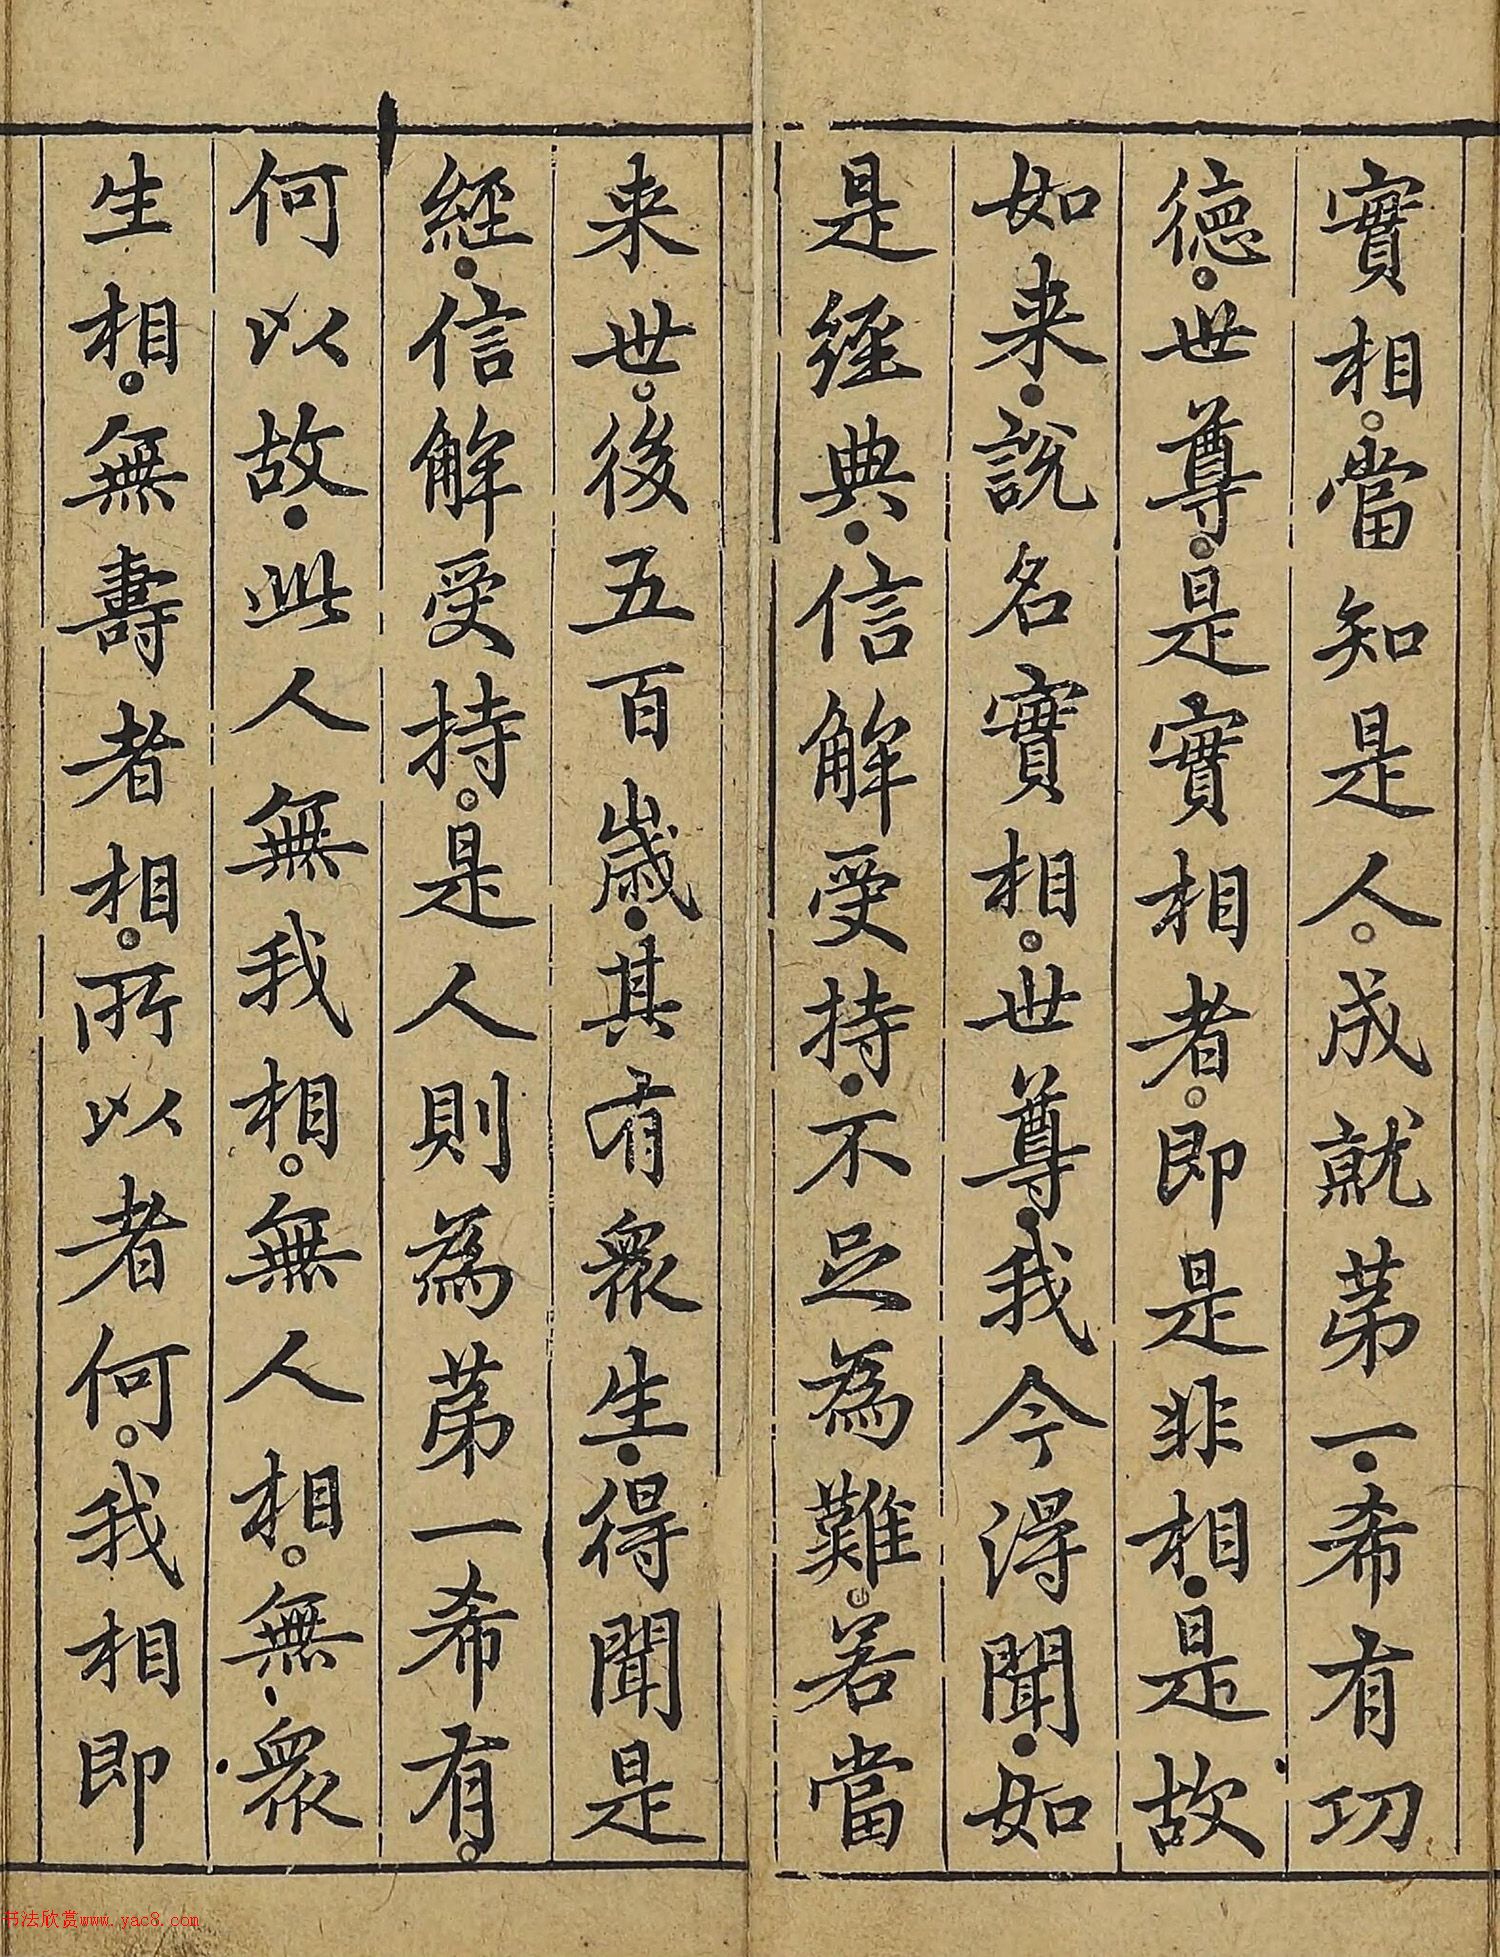 實相。當知是人。成就苐一.希有功
德。世尊。是實相者。即是非相.是故
如来.說名實相。世尊.我今得聞.如
是經典.信解受持.不足為難。若當
来世。後五百歲.其有衆生.得聞是
經.信解受持。是人則為苐一希有。
何以故.此人無我相。無人相。無.衆
生相。無壽者相。所以者何。我相即
书法欣赏www.yac8.com